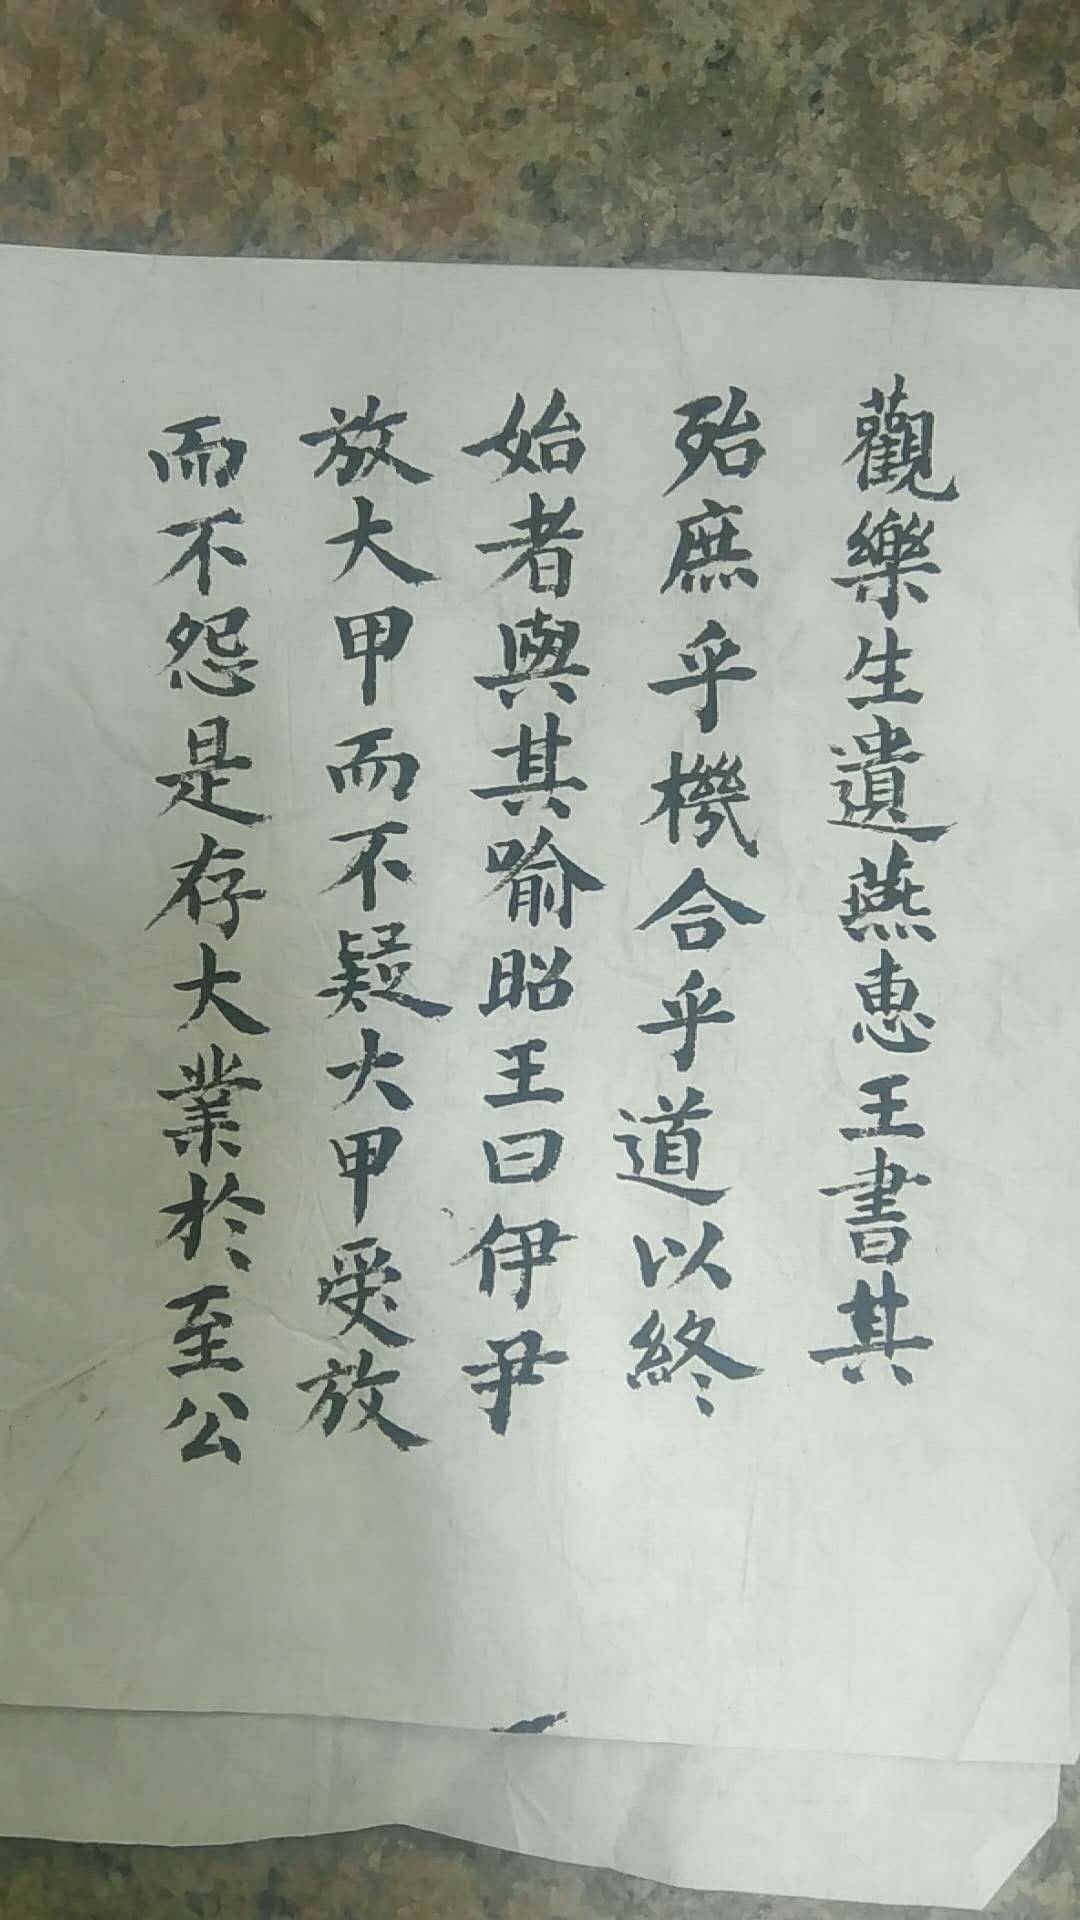 觀樂生遺燕惠王書其
殆庶乎機合乎道以終
始者與其喻昭王曰伊尹
放大甲而不疑大甲受放
而不怨是存大業於至公